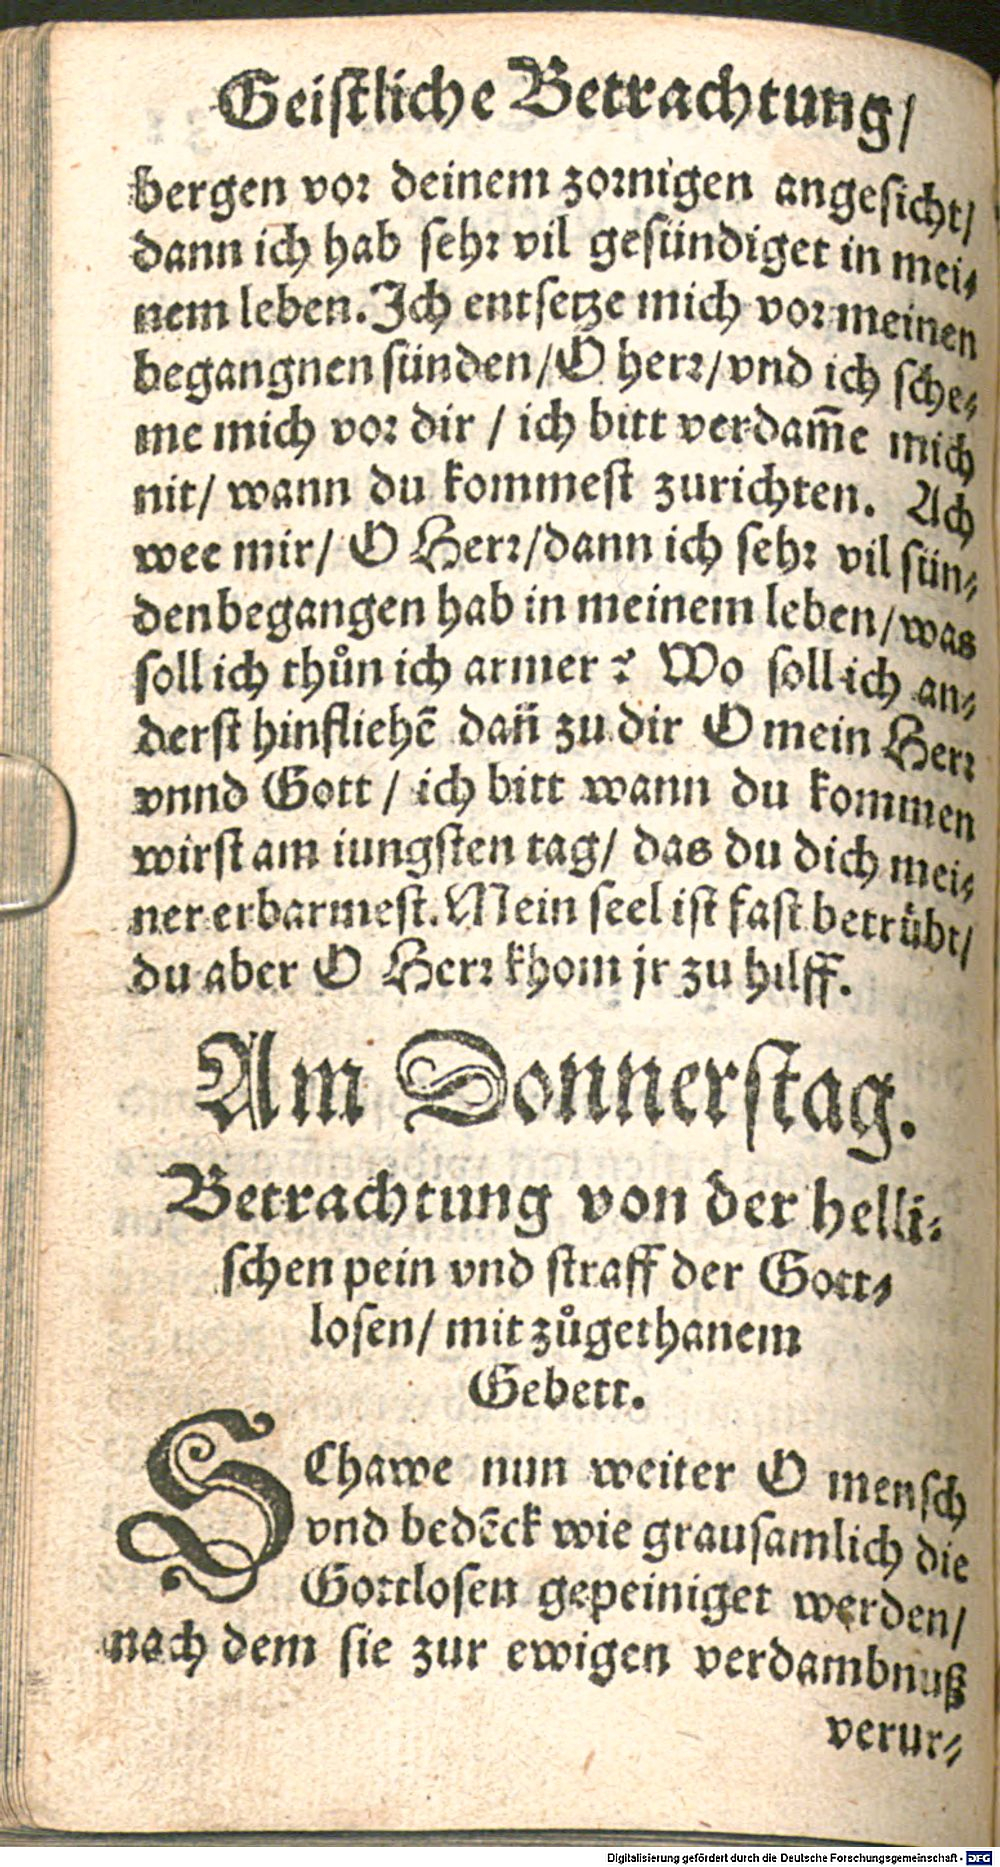 Geistliche Betrachtung/
bergen vor deinem zornigen angesicht/
dann ich hab sehr vil gesündiget in mei⸗
nem leben. Ich entsetze mich vor meinen
begangnen sünden/ O herr/ vnd ich sche⸗
me mich vor dir / ich bitt verdam̄e mich
nit/ wann du kommest zurichten. Ach
wee mir/ O Herr/ dann ich sehr vil sün⸗
den begangen hab in meinem leben/ was
soll ich thůn ich armer? Wo soll ich an⸗
derst hinfliehē dañ zu dir O mein Herr
vnnd Gott / ich bitt wann du kommen
wirst am iungsten tag/ das du dich mei⸗
ner erbarmest. Mein seel ist fast betrübt/
du aber O Herr khom jr zu hilff.
Am Donnerstag.
Betrachtung von der helli⸗
schen pein vnd straff der Gott⸗
losen/ mit zůgethanem
Gebett.
SChawe nun weiter O mensch
vnd bedēck wie grausamlich die
Gottlosen gepeiniget werden/
nach dem sie zur ewigen verdambnuß
verur⸗
Digitalisierung gefördert durch die Deutsche Forschungsgemeinschaft - DFG